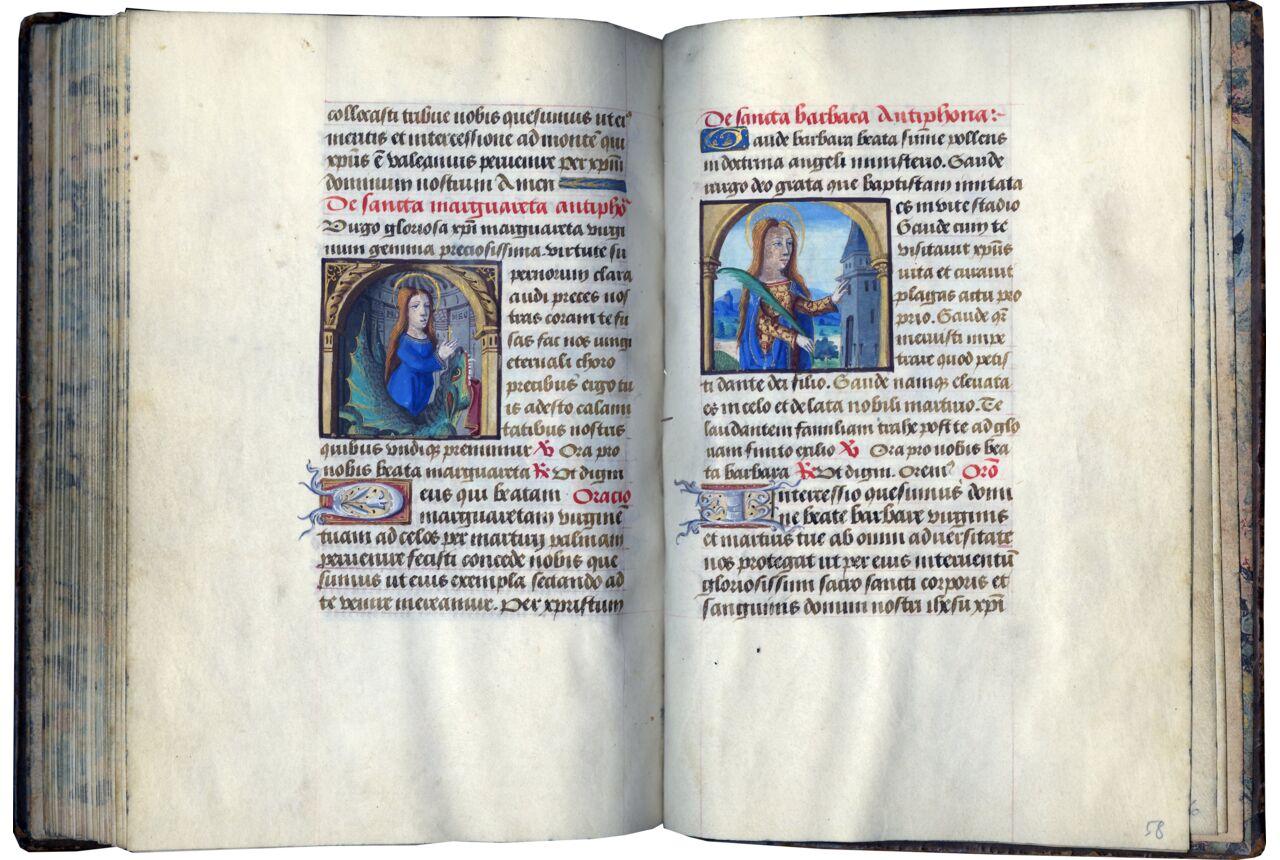 collocasti tribue nobis quesumus ut ei⁹
meritis et intercessione ad montē qui
xp̄us ē valeamus peruenire per xp̄m
dominum nostrum Amen
De sancta marguareta antipho
Virgo gloriosa xp̄i marguareta virgi
num gemma preciosissima virtute su
pernorum clara
audi preces nos
tras coram te fu
sas fac nos iungi
eternali choro
precibus ergo tu
is adesto calami
tatibus nostris
quibus vndiqȝ premimur ℣ Ora pro
nobis beata marguareta ℟ Vt digni
Deus qui beatam Oracio
marguaretam virginē
tuam ad celos per martirij palmam
peruenire fecisti concede nobis que
sumus ut eius exempla sectando ad
te venire mereamur. Per xpristum
De sancta barbara Antiphona:-
Gaude barbara beata sūme pollens
in doctrina angeli ministerio. Gaude
virgo deo grata que baptistam imitata
es in vite stadio
Gaude cum te
visitauit xp̄us
uita et curauit
plagas actu pro
prio. Gaude qr̄
meruisti impe
trare quod petis
ti dante dei filio. Gaude namqȝ eleuata
es in celo et delata nobili martirio. Te
laudantem familiam trahe post te ad glo
riam finito exilio ℣ Ora pro nobis bea
ta barbara ℟ Vt digni. Orem⁹ Orō
Intercessio quesumus domi
ne beate barbare virginis
et martiris tue ab omni aduersitate
nos protegat ut per eius interuentū
gloriosissim sacro sancti corporis et
sanguinis domini nostri ihesu xp̄i
58